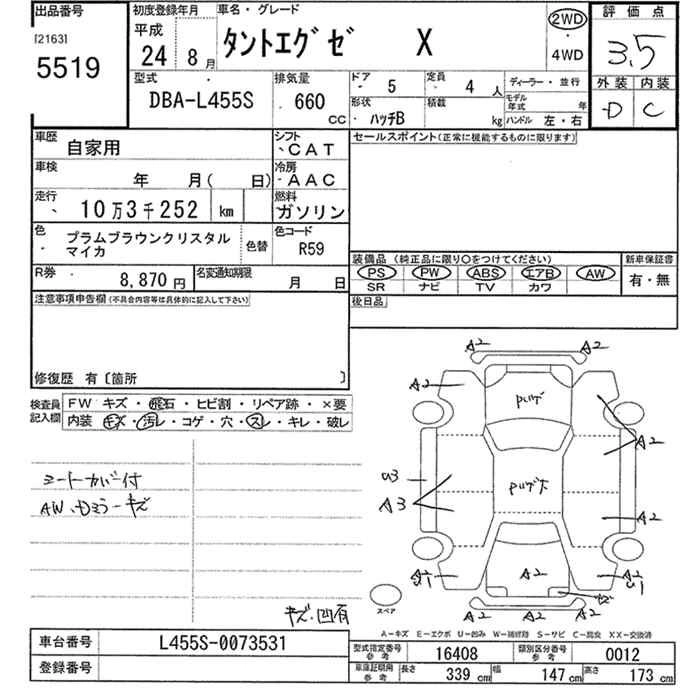 出品番号
[2163]
5519
初度登録年月
平成
24 8月
車名・グレード
タントエグゼ X
2WD
・
4WD
評価点
3.5
外装 内装
-D C
型式
DBA-L455S
排気量
660
CC
ドア
5
定員
4 人
形状
ハッチB
積載
kg
ディーラー・並行
モデル年式 年
ハンドル 左・右
車歴
自家用
シフト
CAT
車検
年 月( 日)
冷房
AAC
走行
10万3千252 km
燃料
ガソリン
色
プラムブラウンクリスタル
マイカ
色替
色コード
R59
R券
8,870円
名変通知期限
月 日
セールスポイント(正常に機能するものに限ります)
装備品(純正品に限り○をつけてください)
PS PW ABS エアB AW
SR ナビ TV カワ
新車保証書
有・無
後日品
注意事項申告欄(不具合内容等は具体的に記入して下さい)
修復歴 有〔箇所 〕
検査員
記入欄
FW キズ・飛石・ヒビ割・リペア跡・×要
内装 キズ・汚レ・コゲ・穴・スレ・キレ・破レ
シートカバー付
AW、Dミラーキズ
キズ、凹有
A2 A2
A2
A2
U3
A3
A2
A2
A2
A2 A2
スペア
A-キズ E-エクボ U-凹み W-補修跡 S-サビ C-腐食 XX-交換済
車台番号
L455S-0073531
登録番号
型式指定番号
参考
16408
類別区分番号
参考
0012
車庫証明用
参考
長さ 339 cm 幅 147 cm 高さ 173 cm